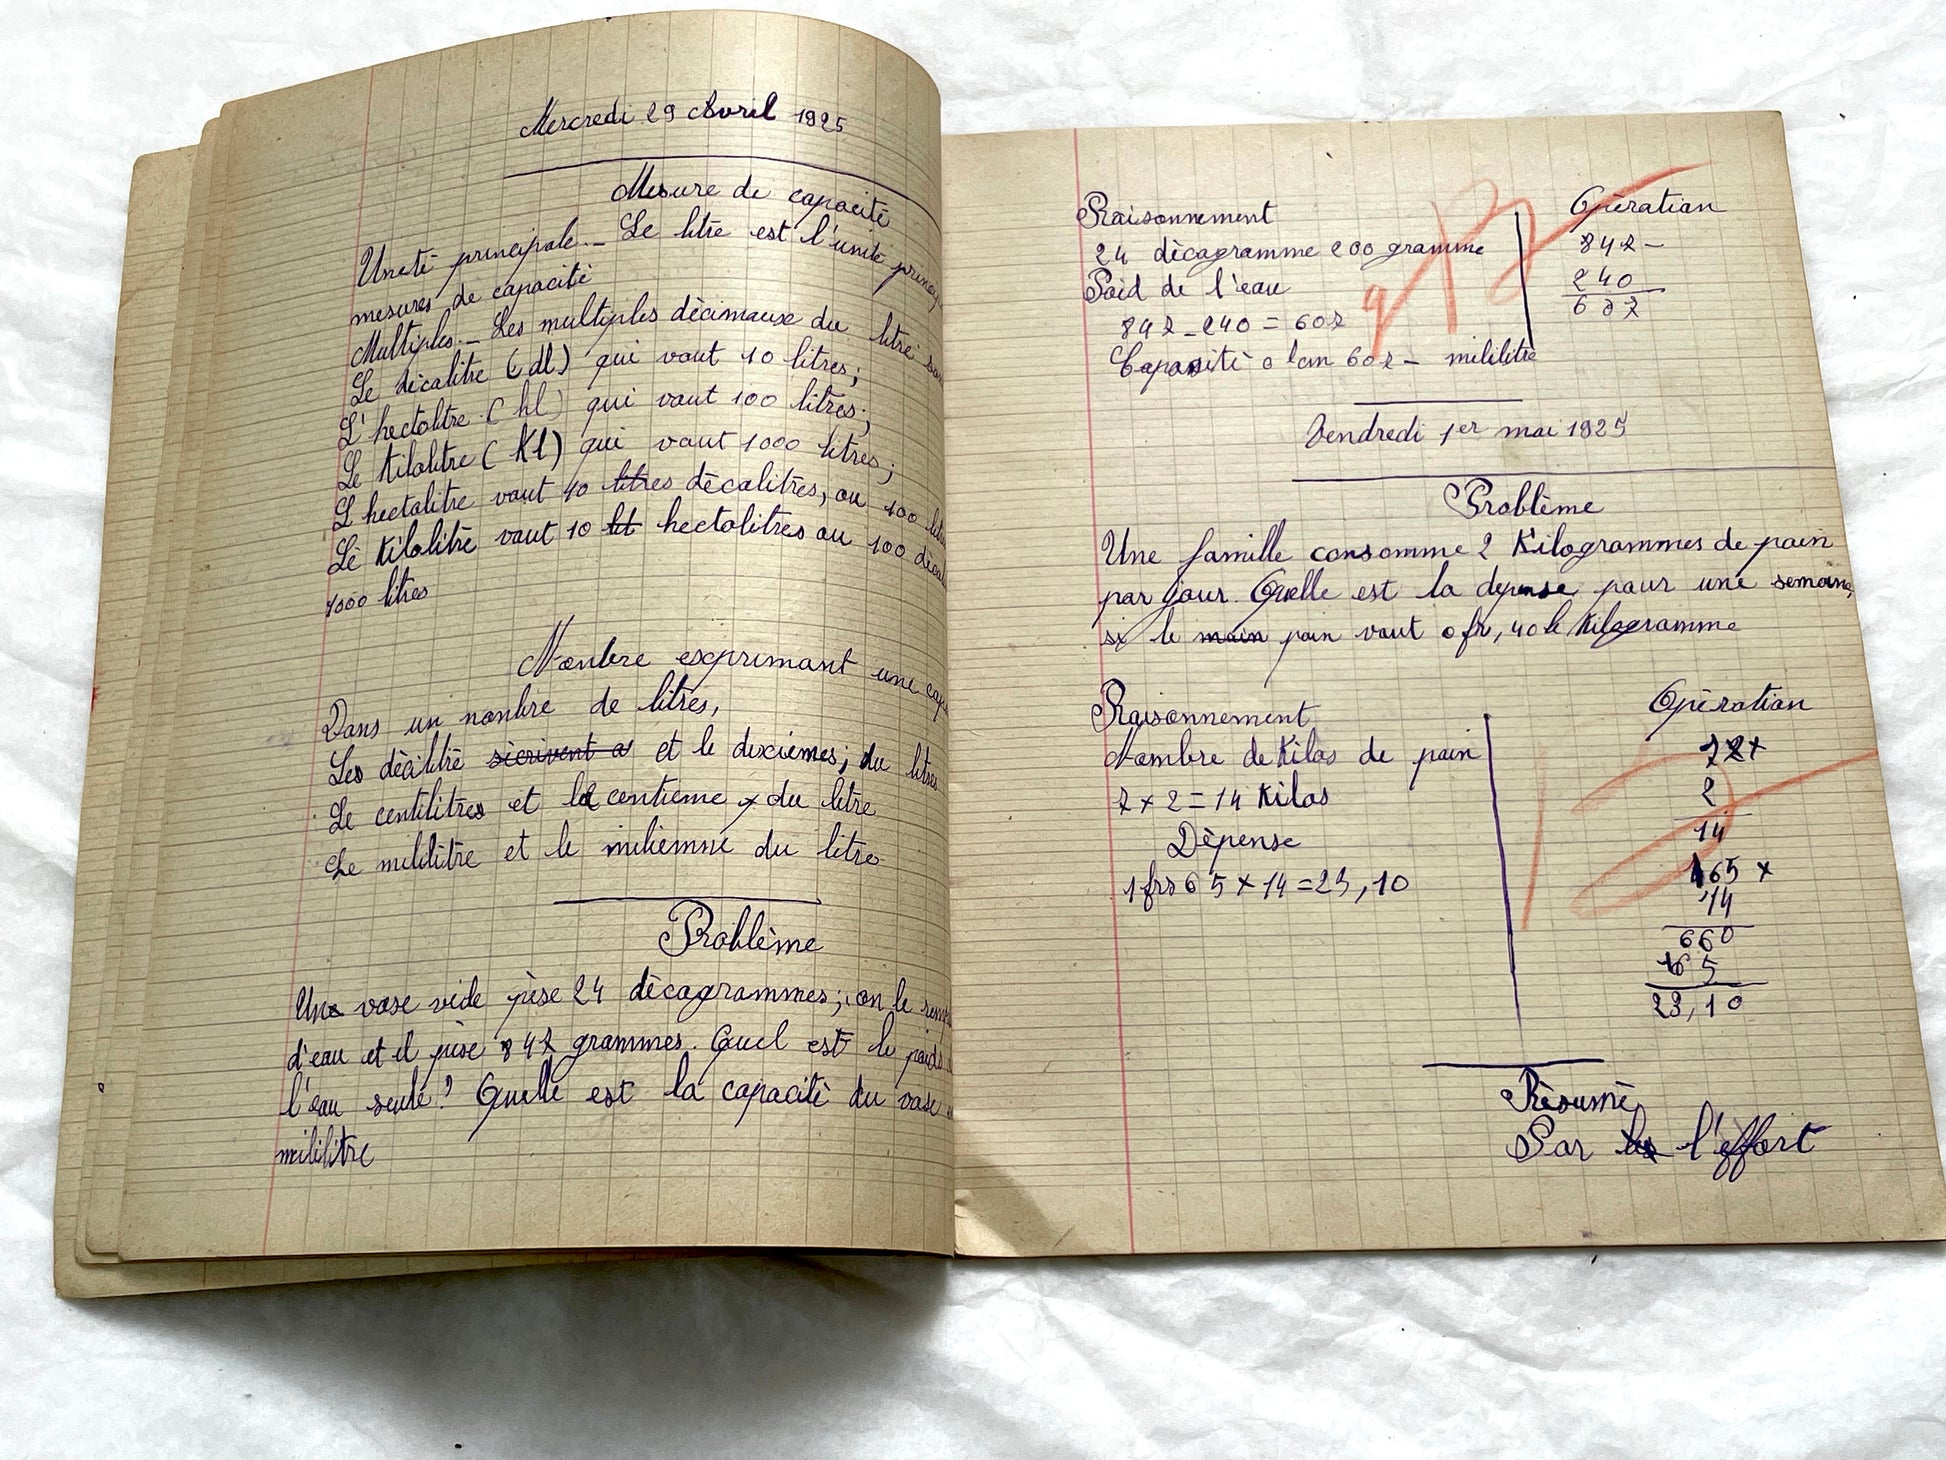 Mercredi 29 Avril 1925
Mesure de capacité
Uneté principale _ Le litre est l'unité
mesures de capacité
Multiples _ Les multiples dècimause du litre
Le dècalitre (dl) qui vaut 10 litres;
L'hectolitre (hl) qui vaut 100 litres;
Le Kilolitre (Kl) qui vaut 1000 litres;
L hectalitre vaut 10 litres dècalitres, ou 100
Lè Kilolitre vaut 10 lit hectolitres ou 100
1000 litres
Nombre exprimant une
Dans un nombre de litres,
Les dècilitre sècrivent a et le dixiemes; du litres
Le centilitres et le centieme x du litre
Le mililitre et le miliemme du litre
Problème
Une vase vide pèse 24 dècagrammes; on le
d'eau et il pèse 842 grammes. Quel est le poids
l'eau seule? Quelle est la capacitè du vase
mililitre
Raisonnement
24 dècagramme 200 gramme
Poid de l'eau
842 _ 240 = 602
Capasitè 602 _ mililitre
Opèration
842 _
240
602
Vendredi 1er mai 1925
Problème
Une famille consomme 2 Kilogrammes de pain
par jour. Quelle est la depense pour une semaine,
si le main pain vaut 0 fr, 40 le Kilogramme
Raisonnement
Nombre de Kilos de pain
7 x 2 = 14 Kilos
Dèpense
1 frs 65 x 14 = 23,10
Opèration
7 x
2
14
165 x
14
660
165
23,10
Rèsumè
Par l'effort